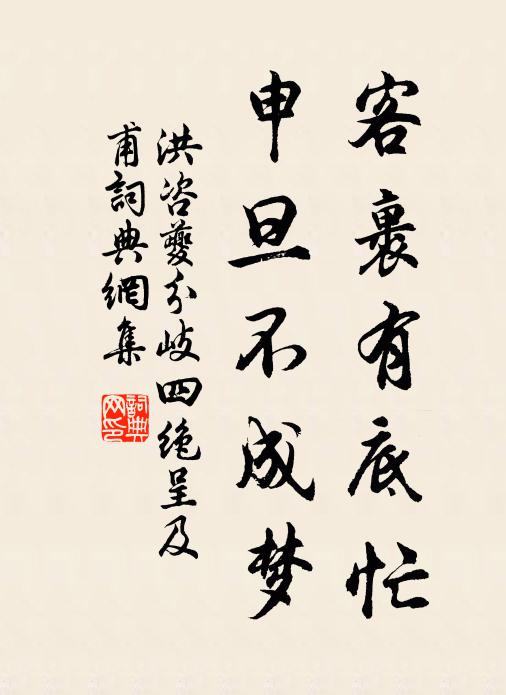 客裹有底忙
申旦不成梦
洪咨夔分岐四绝呈及
甫詞典網集
詞典网印